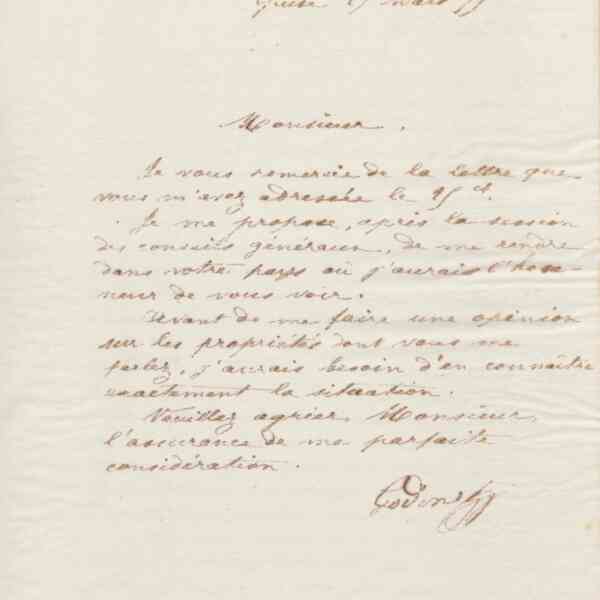 Guise 15 mars
Monsieur,
Je vous remercie de la lettre que
vous m'avez adressée le 9 ct.
Je me propose, après la session
des conseils généraux, de me rendre
dans votre pays où j'aurais l'hon-
neur de vous voir.
Avant de me faire une opinion
sur les propriétés dont vous me
parlez, j'aurais besoin d'en connaître
exactement la situation.
Veuillez agréer, Monsieur,
l'assurance de ma parfaite
considération.
Godin